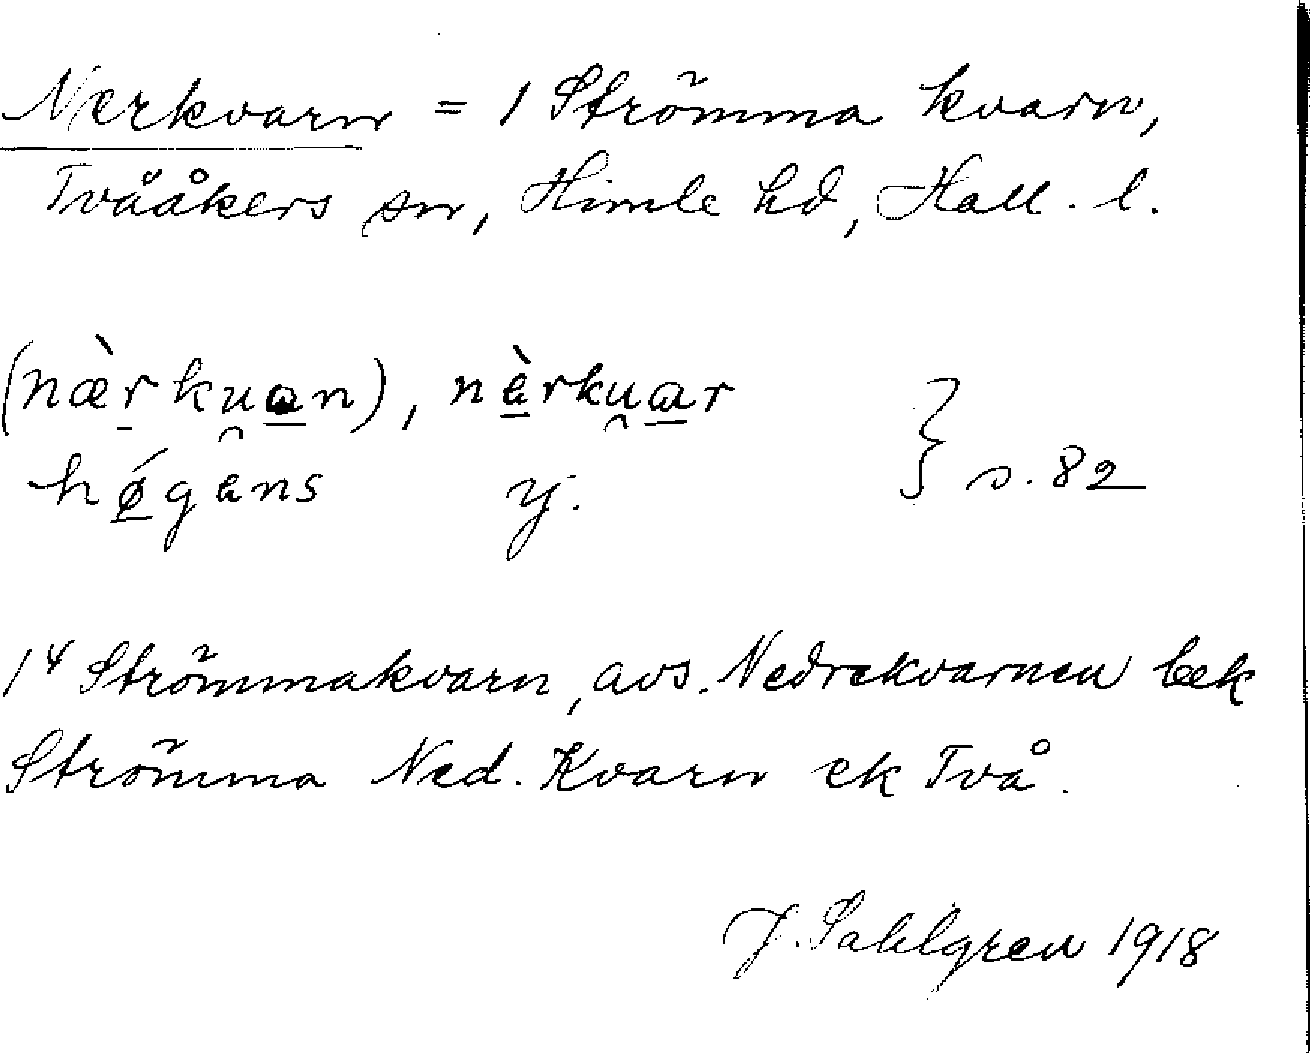 Nerkvarn = 1 Strömma kvarn,
Tvååkers sn, Himle hd, Hall. l.
(næ̀rku̯an), nèrku̯ar
hǿgans y. } s. 82
1⁴ Strömmakvarn, avs. Nedrekvarnen bek
Strömma Ned. Kvarn ek Två.
J. Sahlgren 1918